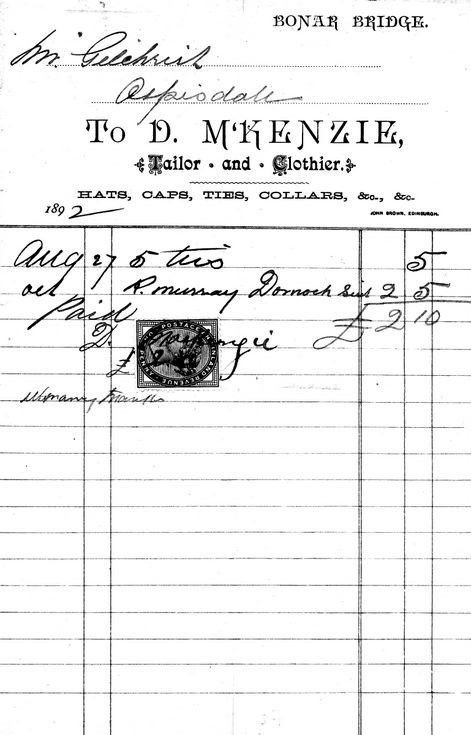 BONAR BRIDGE.
Mr Gilchrist
Ospisdale
To D. McKENZIE,
Tailor · and · Clothier.
HATS, CAPS, TIES, COLLARS, &c., &c.
1892
JOHN BROWN, EDINBURGH.
Aug 27 5 ties 5
Oct R. Murray Dornoch Suit 2 5
Paid £2 10
D. McKenzie
POSTAGE REVENUE
£2
thanks